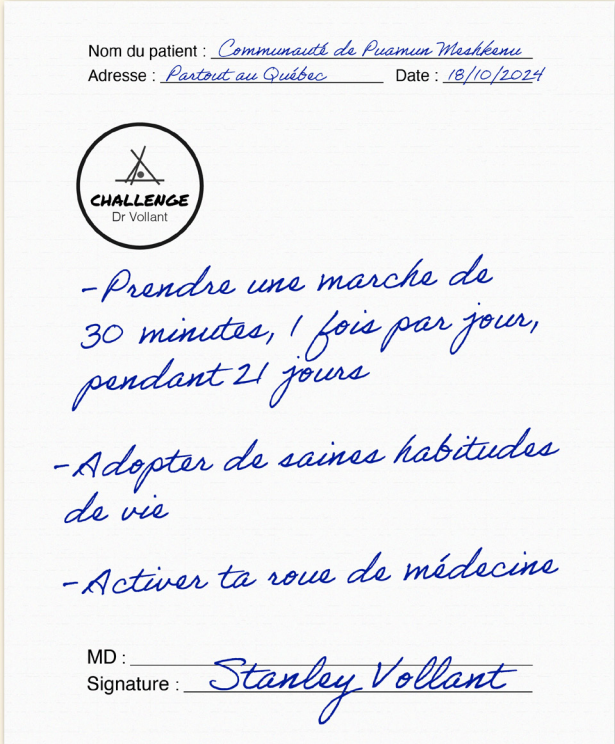 Nom du patient : Communauté de Puamun Meshkenu
Adresse : Partout au Québec Date : 18/10/2024
CHALLENGE
Dr Vollant
-Prendre une marche de
30 minutes, 1 fois par jour,
pendant 21 jours
-Adopter de saines habitudes
de vie
-Activer ta roue de médecine
MD :
Signature : Stanley Vollant